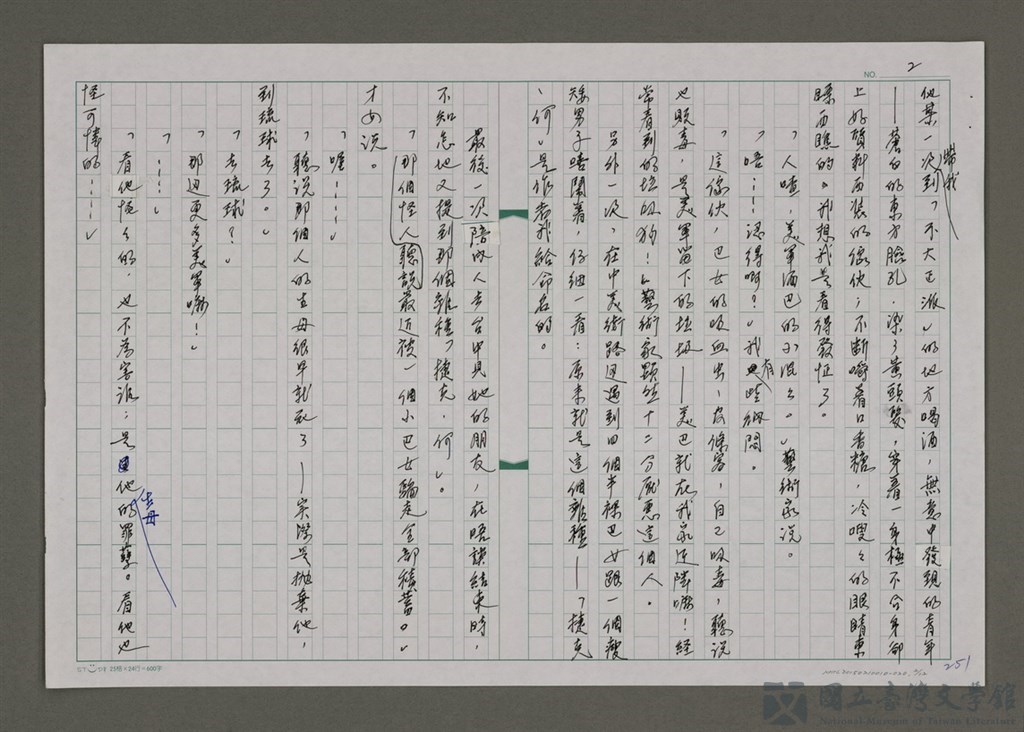 NO. 2
他某一次帶我到「不大正派」的地方喝酒，無意中發現的青年
——蒼白的東方臉孔，染了黃頭髮，穿着一身極不合身卻
上好質料西裝的傢伙；不斷嚼着口香糖，冷嗖々的眼睛東
瞟西瞧的。我想我是看得發怔了。
「人渣，美軍酒巴的小混々。」藝術家說。
「唔……認得啊？」我有些納悶。
這傢伙，巴女的吸血虫、皮條客，自己吸毒，聽說
也販毒，是美軍留下的垃圾——美巴就在我家近隣嘛！經
常看到的垃圾狗！」藝術家顯然十二分厭惡這個人。
另外一次，在中美術路迎遇到四個半裸巴女跟一個瘦
矮男子嘻鬧着，仔細一看：原來就是這個雜種——「捷克
、何」是作者我給命名的。
最後一次陪内人去台中見她的朋友，在晤談結束時，
不知怎地又提到那個雜種「捷克，何」。
「那個怪人聽說最近被一個小巴女騙走全部積蓄。」
才女說。
「喔……」
「聽說那個人的生母很早就死了——實際是拋棄他，
到琉球去了。」
「去琉球？」
「那邊更多美軍嘛！」
「……」
「看他怪々的，也不為害誰；是他生母的罪孽。看他也
怪可憐的……」
23格×24行=600字
251
國立臺灣文學館
National Museum of Taiwan Literature